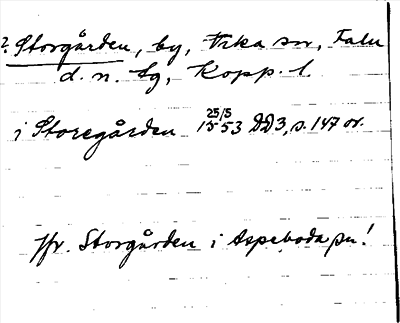 ? Storgården, by, Vika sn, Falu
d. n. tg, Kopp. l.
i Storegården 25/5 1553 DD3, s. 147 or.
Jfr. Storgården i Aspeboda sn!